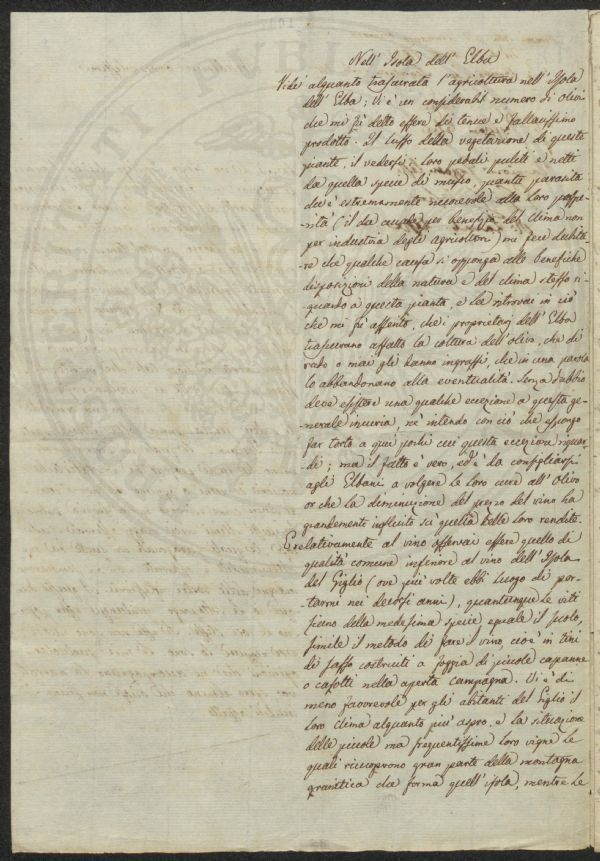 Nell' Isola dell' Elba
Vidi alquanto trascurata l'agricoltura nell'Isola
dell' Elba; Vi è un considerabil numero di olivi
che mi fù detto essere di tenue e fallacissimo
prodotto. Il lusso della vegetazione di queste
piante, il vedersi i loro pedali puliti e netti
da quella specie di musco, pianta parasita
che è estremamente nocevole alla loro prospe-
rità (il che accade per benefizio del Clima non
per industria degli agricoltori) mi fece dubita-
re che qualche causa si opponga alle benefiche
disposizioni della natura e del clima stesso ri-
guardo a questa pianta, e la ritrovai in ciò
che mi fù asserito, che i proprietarj dell' Elba
trascurano affatto la coltura dell'olivo, che di
rado o mai gli danno ingrassi, che in una parola
lo abbandonano alla eventualità. Senza dubbio
deve esistere una qualche eccezione a questa ge-
nerale incuria, nè intendo con ciò che espongo
far torto a quei pochi cui questa eccezione riguar-
di; ma il fatto è vero, ed è da consigliarsi
agli Elbani a volgere le loro cure all' Olivo
or che la diminuzione del prezzo del vino ha
grandemente influito sù quella delle loro rendite.
E relativamente al vino osservai essere quello di
qualità comune inferiore al vino dell' Isola
del Giglio (ove più volte ebbi luogo di por-
tarmi nei decorsi anni), quantunque le viti
siano della medesima specie, eguale il suolo,
simile il metodo di fare il vino, cioè in tini
di sasso costruiti a foggia di piccole capanne
o casotti nella aperta campagna. Vi è di
meno favorevole per gli abitanti del Giglio il
loro clima alquanto più aspro, e la situazione
delle piccole ma frequentissime loro vigne le
quali ricuoprono gran parte della montagna
granitica che forma quell' isola, mentre le